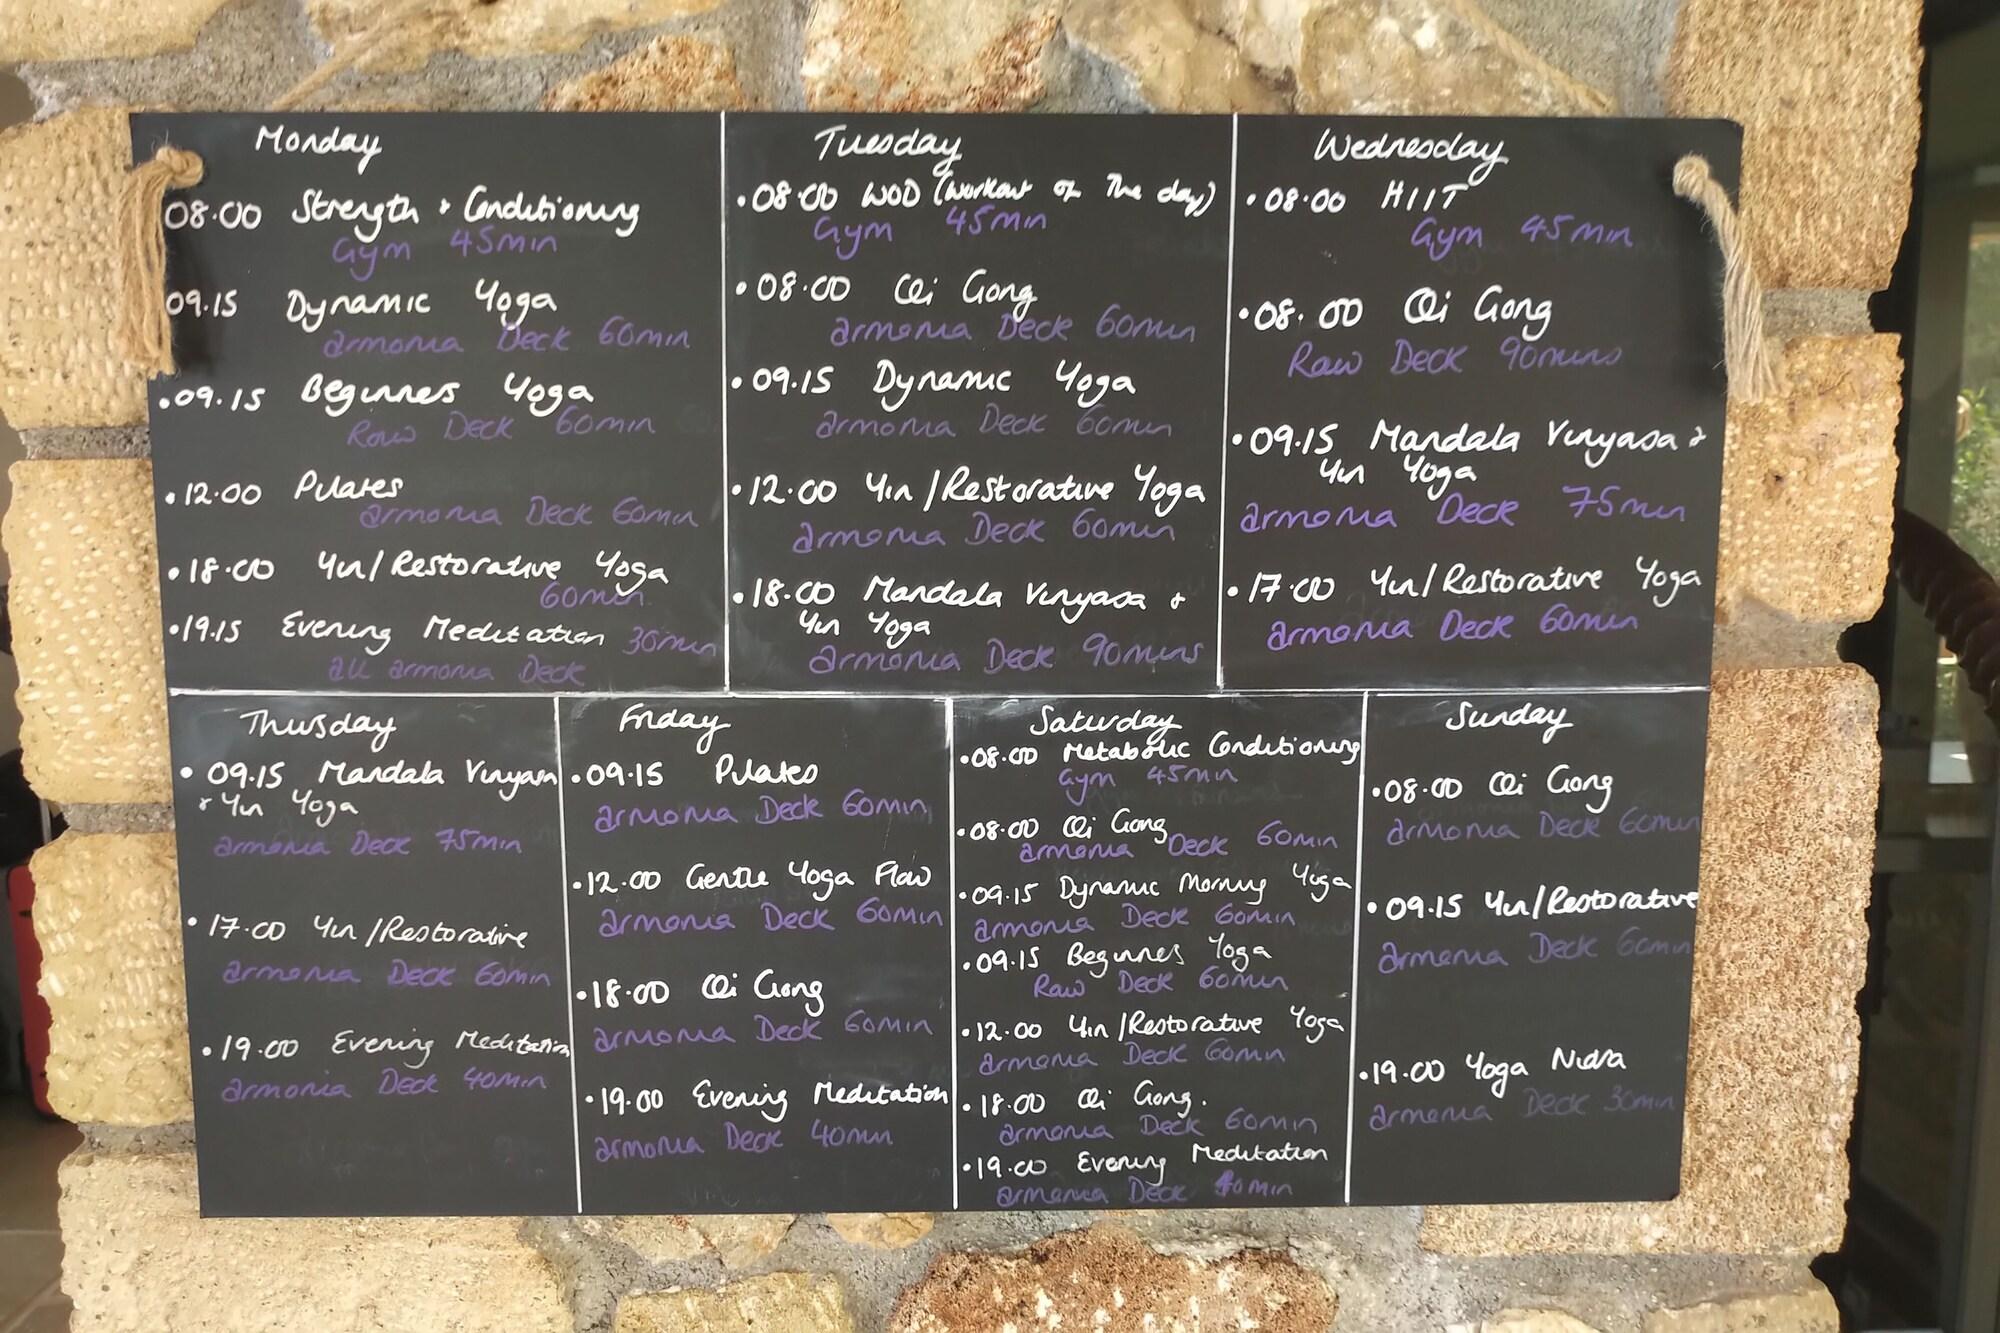 Monday
08.00 Strength + Conditioning
Gym 45min
09.15 Dynamic Yoga
armonia Deck 60min
•09.15 Beginners Yoga
Raw Deck 60min
•12.00 Pilates
armonia Deck 60min
•18.00 Yin/Restorative Yoga
60min
•19.15 Evening Meditation 30min
all armonia Deck
Tuesday
•08.00 WOD (workout of The day)
Gym 45min
•08.00 Qi Gong
armonia Deck 60min
•09.15 Dynamic Yoga
armonia Deck 60min
•12.00 Yin/Restorative Yoga
armonia Deck 60min
•18.00 Mandala Vinyasa +
Yin Yoga
armonia Deck 90mins
Wednesday
•08.00 HIIT
Gym 45min
•08.00 Qi Gong
Raw Deck 90mins
•09.15 Mandala Vinyasa +
Yin Yoga
armonia Deck 75min
•17.00 Yin/Restorative Yoga
armonia Deck 60min
Thursday
•09.15 Mandala Vinyasa
+ Yin Yoga
armonia Deck 75min
•17.00 Yin/Restorative
armonia Deck 60min
•19.00 Evening Meditation
armonia Deck 40min
Friday
•09.15 Pilates
armonia Deck 60min
•12.00 Gentle Yoga Flow
armonia Deck 60min
•18.00 Qi Gong
armonia Deck 60min
•19.00 Evening Meditation
armonia Deck 40min
Saturday
•08.00 Metabolic Conditioning
Gym 45min
•08.00 Qi Gong
armonia Deck 60min
•09.15 Dynamic Morning Yoga
armonia Deck 60min
•09.15 Beginners Yoga
Raw Deck 60min
•12.00 Yin/Restorative Yoga
armonia Deck 60min
•18.00 Qi Gong.
armonia Deck 60min
•19.00 Evening Meditation
armonia Deck 40min
Sunday
•08.00 Qi Gong
armonia Deck 60min
•09.15 Yin/Restorative
armonia Deck 60min
•19.00 Yoga Nidra
armonia Deck 30min